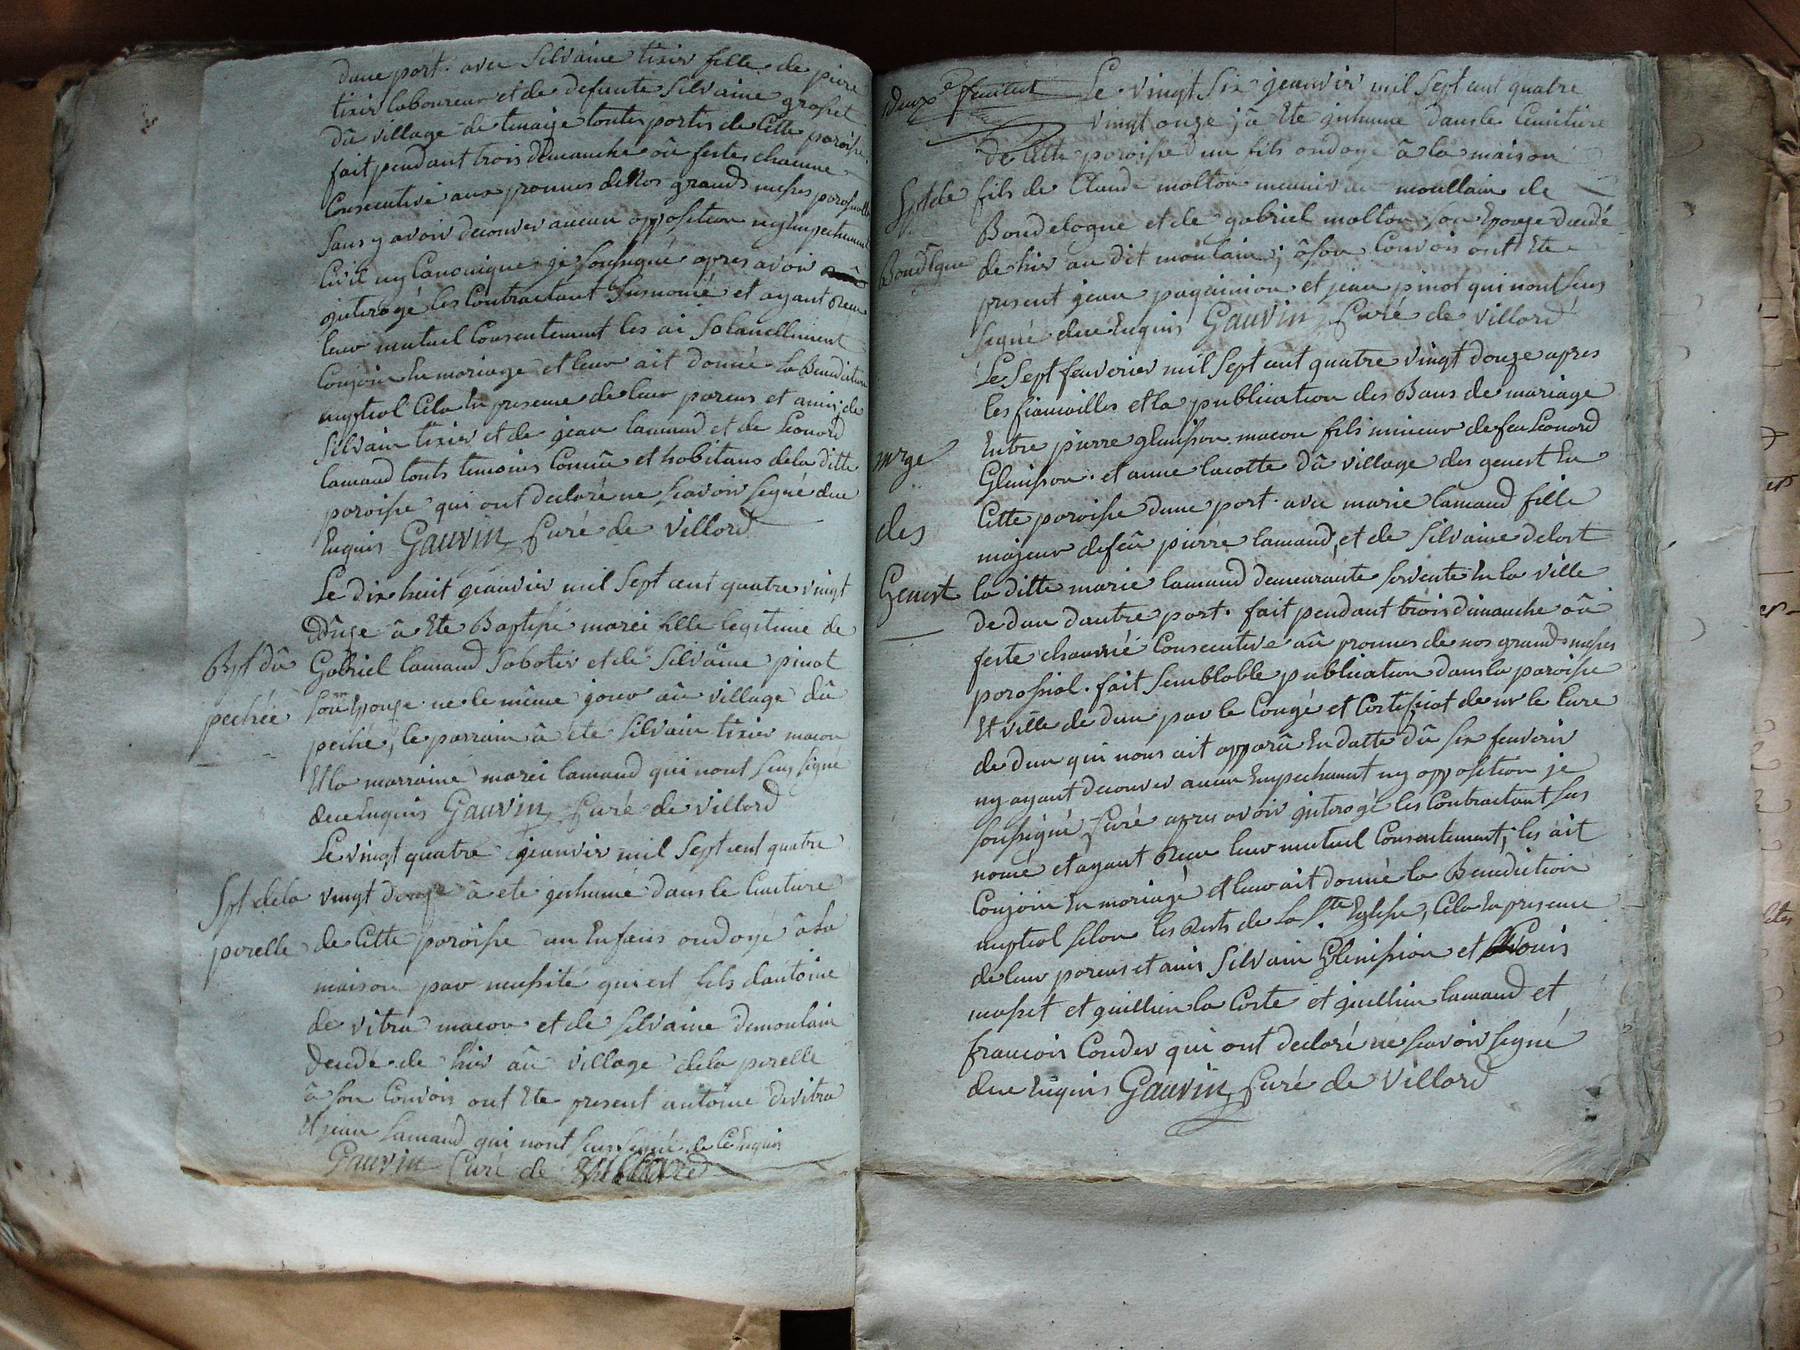 dune part. avec Silvaine tixier fille de pierre
tixier laboureur et de defunte Silvaine grosset
dû village de tinaige toutes parties de Cette paroisse.
fait pendant trois dimanche oû festes chaumé
Consecutive aux pronnes de Nos grands messes paroissialle
sans y avoir decouver aucun opposition ny empechement
Civil ny Canonique je soussigné apres avoir
interogé les Contractant susnomé et ayant Recu
leur mutuel Consentement les ai solanellment
Conjoin En mariage et leur ait donné la Benediction
nuptiol Cela En presence de leur parens et amis de
Silvain tixier et de jean lamaud et de Leonard
lamaud touts temoins Connûe et habitans de la ditte
paroisse qui ont declaré ne scavoir segné due
Enquis Gauvin Curé de Villard
Le dix huit jeanvier mil Sept cent quatre vingt
Dûze â Ete Baptisé marei fille legitime de
Bpt dû Gabriel lamaud Sabotier et de Silvaine pinot
pechée son Epouse ne le même jour aû village dû
peché, le parrain â ete silvain tixier macon
Et la marraine marei lamaud qui nont seus signé
due Enquis Gauvin Curé de Villard
Le vingt quatre jeanvier mil Sept cent quatre
Spt dela vingt douze â ete inhumé dans le Cimitiere
perelle de Cette paroisse un Enfans ondoyé â la
maison par necessité qui est fils dantoine
de vitra macon et de silvaine demoulain
decedé de hier aû village dela perelle
â son Convois ont Ete present antoine devitra
Et jean lamaud qui nont seus segné de Ce Enquis
Gauvin Curé de Villard
deuxe feuillet Le vingt Six jeanvier mil Sept cent quatre
vingt onze jâ Ete inhumé dans le Cimitiere
de Cette paroisse un fils ondoyé â la maison
Spt de fils de Claude molton meunier au moullain de
Boudlgne Boudelogne et de gabriel molton son Epouse decedé
de hier au dit moulain; â son Convois ont Ete
present jean pagainion et jean pinot qui nont seus
segné due Enquis Gauvin Curé de Villard
Le Sept feuverier mil Sept cent quatre vingt douze apres
les fiancailles et la publication des Bans de mariage
mrge Entre pierre glenisson macon fils mineur de feu Leonard
Glenisson. et anne lacotte dû village des genest En
des Cette paroisse dune part. avec marie lamaud fille
majeur de feû pierre lamaud, et de Silvaine delort
Genest la ditte marie lamaud demeurante servente En la ville
de dun dautre part. fait pendant trois dimanche oû
feste chaumé Consecutive aû pronnes de nos grands messes
parossial. fait Semblable publication dans la paroisse
Et ville de dun par le Congé et Certificat de mr le Cure
de dun qui nous ait apparû En datte dû six feuverier
ny ayant decouver aucun Empechement ny opposition je
soussigné Curé apres avoir interogé les Contractant sus
nomé et ayant Recu leur mutuel Consentement, les ait
Conjoin En mariage et leur ait donné la Benediction
nuptiol selon les Rits de la Ste Eglise, Cela En presence
de leur parens et amis Silvain Glenission et Louis
masset et guillien la Corte et guillien lamaud et
francois Conder qui ont declaré ne scavoir segné
due Enquis Gauvin Curé de Villard